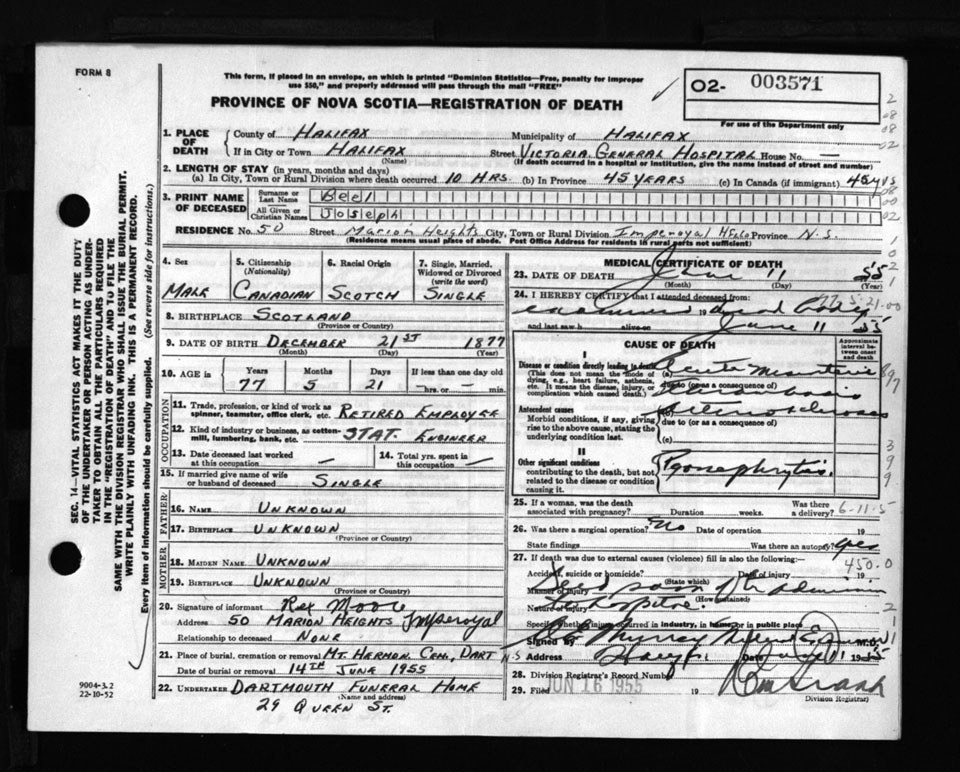 FORM 8
This form, if placed in an envelope, on which is printed "Dominion Statistics—Free, penalty for improper
use $50," and properly addressed will pass through the mail "FREE"
PROVINCE OF NOVA SCOTIA—REGISTRATION OF DEATH
O2- 003571
For use of the Department only
1. PLACE OF DEATH
County of HALIFAX Municipality of HALIFAX
If in City or Town HALIFAX Street VICTORIA GENERAL HOSPITAL House No. —
(Name) (If death occurred in a hospital or institution, give the name instead of street and number)
2. LENGTH OF STAY (in years, months and days)
(a) In City, Town or Rural Division where death occurred 10 HRS. (b) In Province 45 YEARS (c) In Canada (if immigrant) 45 yrs
3. PRINT NAME OF DECEASED
Surname or Last Name Bell
All Given or Christian Names Joseph
RESIDENCE No. 50 Street Marion Heights City, Town or Rural Division Imperoyal Hfx Co Province N.S.
(Residence means usual place of abode. Post Office Address for residents in rural parts not sufficient)
4. Sex
MALE
5. Citizenship
(Nationality)
CANADIAN
6. Racial Origin
SCOTCH
7. Single, Married, Widowed or Divorced
(write the word)
SINGLE
8. BIRTHPLACE SCOTLAND
(Province or Country)
9. DATE OF BIRTH DECEMBER 21ST 1877
(Month) (Day) (Year)
10. AGE in
Years Months Days If less than one day old
77 5 21 —hrs. or — min.
OCCUPATION
11. Trade, profession, or kind of work as
spinner, teamster, office clerk, etc. RETIRED EMPLOYEE
12. Kind of industry or business, as cotton-
mill, lumbering, bank, etc. STAT. ENGINEER
13. Date deceased last worked
at this occupation —
14. Total yrs. spent in
this occupation —
15. If married give name of wife
or husband of deceased SINGLE
FATHER
16. NAME UNKNOWN
17. BIRTHPLACE UNKNOWN
(Province or Country)
MOTHER
18. MAIDEN NAME UNKNOWN
19. BIRTHPLACE UNKNOWN
(Province or Country)
20. Signature of informant Rex Moore
Address 50 MARION HEIGHTS Imperoyal
Relationship to deceased NONE
21. Place of burial, cremation or removal MT. HERMON. CEM., DART N.S
Date of burial or removal 14TH JUNE 1955
22. UNDERTAKER DARTMOUTH FUNERAL HOME
(Name and address)
29 QUEEN ST.
MEDICAL CERTIFICATE OF DEATH
23. DATE OF DEATH June 11 55
(Month) (Day)
24. I HEREBY CERTIFY that I attended deceased from:
examined 19 dead body
and last saw h alive on June 11 55
CAUSE OF DEATH
Approximate interval between onset and death
I
Disease or condition directly leading to death
(This does not mean the mode of
dying, e.g., heart failure, asthenia,
etc. It means the disease, injury, or
complication which caused death.)
(a) Acute Mesenteric
due to (or as a consequence of)
Thrombosis
Antecedent causes
Morbid conditions, if any, giving
rise to the above cause, stating the
underlying condition last.
Arteriosclerosis
due to (or as a consequence of)
(c)
II
Other significant conditions
contributing to the death, but not
related to the disease or condition
causing it.
Pyonephritis.
25. If a woman, was the death
associated with pregnancy? Duration weeks. Was there
a delivery?
6-11-5
26. Was there a surgical operation? No Date of operation 19
State findings Was there an autopsy? yes
27. If death was due to external causes (violence) fill in also the following:—
450.0
Accident, suicide or homicide? Date of injury 19
(State which)
Manner of injury
(How sustained)
Nature of injury
Specify whether injury occurred in industry, in home, or in public place
Signed by Murray M.D.
Address Date June 11 1955
28. Division Registrar's Record Number
29. Filed JUN 16 1955 19
Division Registrar
9004-3.2
22-10-52
SEC. 14—VITAL STATISTICS ACT MAKES IT THE DUTY
OF THE UNDERTAKER OR PERSON ACTING AS UNDER-
TAKER TO OBTAIN ALL THE PARTICULARS REQUIRED
IN THE "REGISTRATION OF DEATH" AND TO FILE THE
SAME WITH THE DIVISION REGISTRAR WHO SHALL ISSUE THE BURIAL PERMIT.
WRITE PLAINLY WITH UNFADING INK. THIS IS A PERMANENT RECORD.
Every item of information should be carefully supplied. (See reverse side for instructions.)